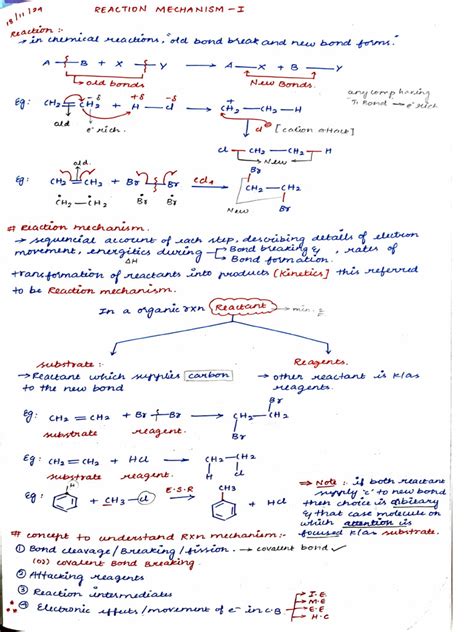 18/11/24
REACTION MECHANISM - I
Reaction :-
→ in chemical reactions, "old bond break and new bond forms."
A—B + X—Y → A—X + B—Y
old bonds
New Bonds.
any comp having
π Bond → e⁻ rich
Eg: CH₂=CH₂ + H—Cl → CH₂—CH₂—H
+δ -δ +
old e⁻ rich.
Cl⁻ [cation attack]
Cl—CH₂—CH₂—H
New
old.
Eg: CH₂=CH₂ + Br—Br → CH₂—CH₂
CCl₄
Br
Br
ĊH₂—ĊH₂ Ḃr Ḃr
New
# Reaction mechanism.
→ sequencial account of each step, describing details of electron
movement, energitics during Bond breaking & rates of
ΔH Bond formation.
transformation of reactants into products [Kinetics] this referred
to be Reaction mechanism.
In a organic rxn Reactant → min. 2
substrate :-
→ Reactant which supplies carbon
to the new bond
Reagents.
→ other reactant is k/as
reagents.
Eg: CH₂=CH₂ + Br—Br → CH₂—CH₂
Br
Br
substrate reagent.
Eg: CH₂=CH₂ + HCl → CH₂—CH₂
H Cl
substrate reagent.
Eg: + CH₃—Cl → + HCl
H
E.S.R
CH₃
⇒ Note : if both reactant
supply 'c' to new bond
then choice is
& that case molecule on
which attention is
focused k/as substrate.
# concept to understand Rxn mechanism:-
① Bond cleavage/Breaking/fission → covalent bond ✓
(or) covalent Bond Breaking.
② Attacking reagents
③ Reaction intermediates
④ Electronic effects/movement of e⁻ in C.B
I.E
M.E
E.E
H.C